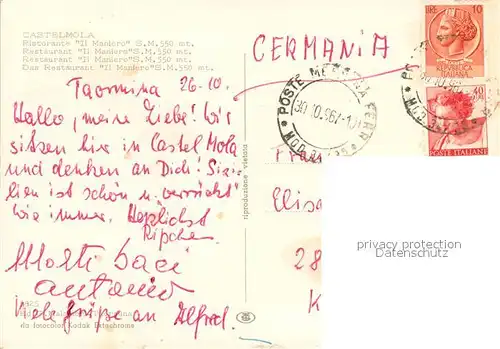 CASTELMOLA
Ristorante "Il Maniero" S.M. 550 mt.
Restaurant "Il Maniero" S.M. 550 mt.
Restaurant "Il Maniero" S.M. 550 mt.
Das Restaurant "Il Maniero" S.M. 550 mt.
Taormina 26-10.
Hallo, meine Liebe! Wir
sitzen hier in Castel Mola
und denken an Dich! Sizi-
lien ist schön u. verrückt
wie immer. Herzlichst
Ripchen
Molti baci
Antonio
Viele Grüße an Alfred.
da fotocolor Kodak Ektachrome
riproduzione vietata
GERMANIA
POSTE MESSINA FERR.
30.10.967
LIRE 10
ITALIANA
40
POSTE ITALIANE
Elisa
28
K
privacy protection
Datenschutz